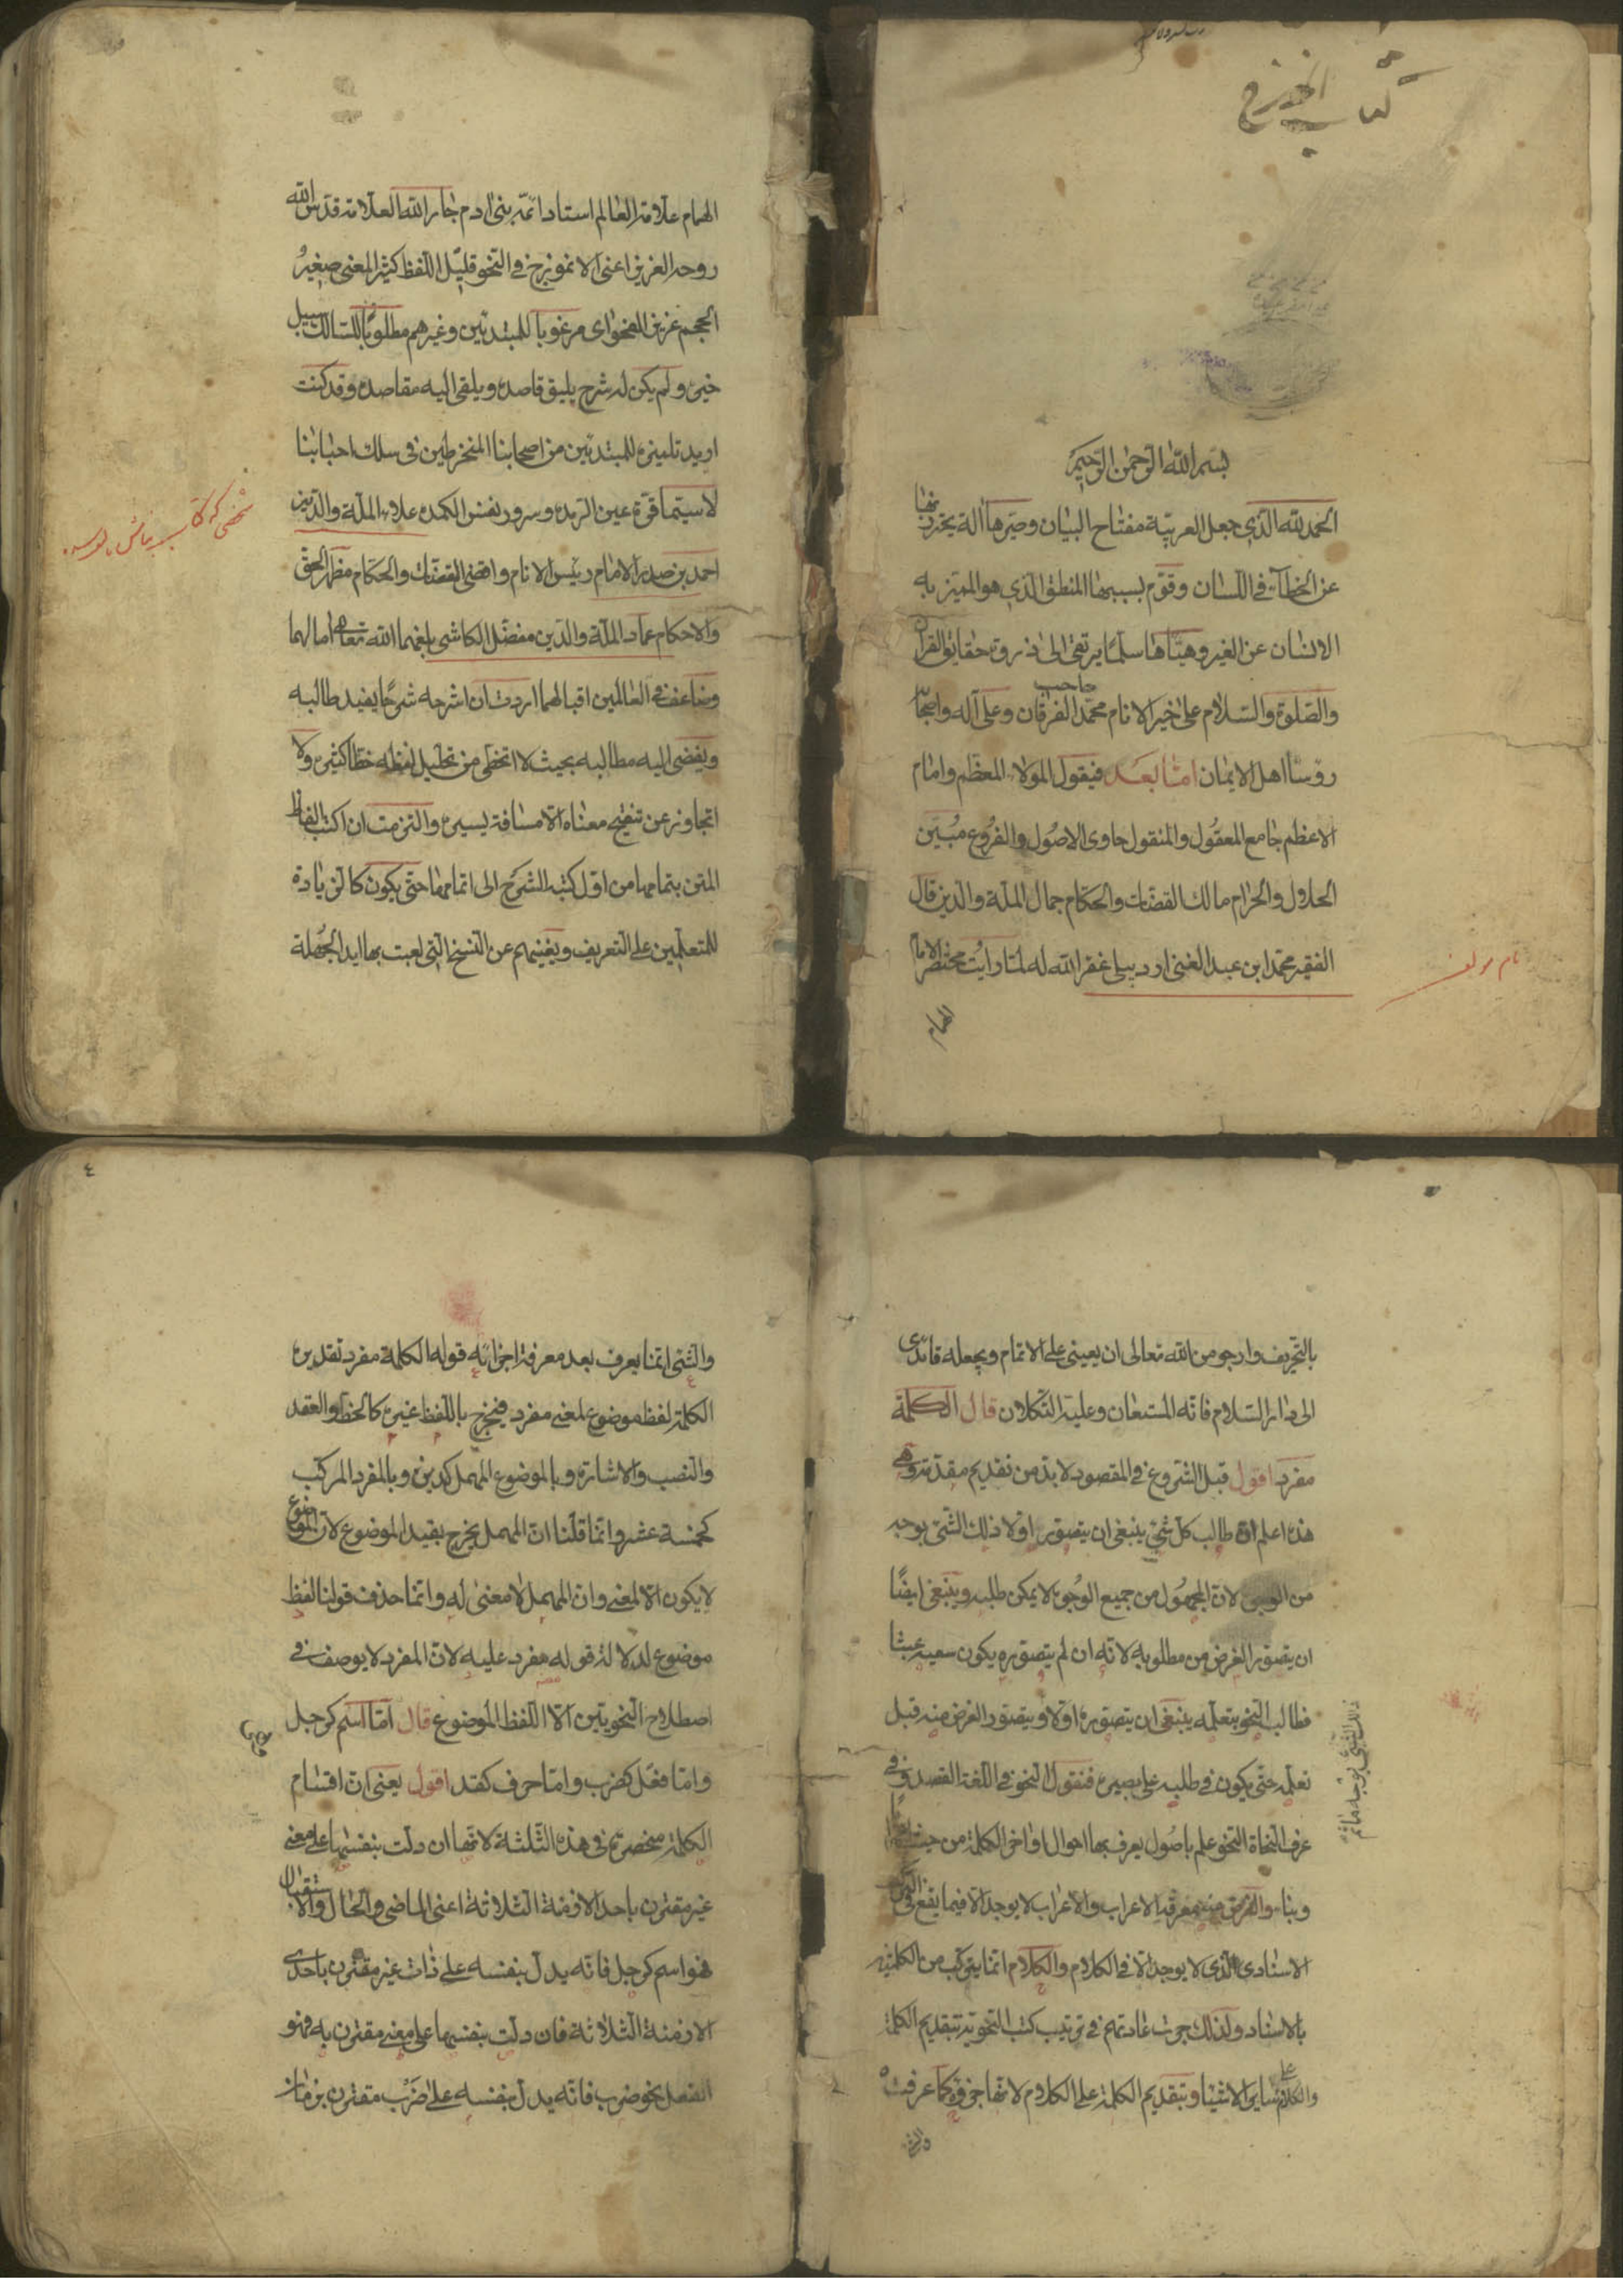 كتاب
بسم الله الرحمن الرحيم
الحمد لله الذي جعل العربية مفتاح البيان وصيرها آلة يحترز بها
عن الخطآء في اللسان وقوم بسببها المنطق الذي هو المميز به
الانسان عن الغير وهيّأها سلّما يرتقى الى ذروة حقايق القرآن
والصلوة والسلام على خير الانام محمد صاحب الفرقان وعلى آله واصحابه
رؤسا اهل الايمان امّا بعد فيقول المولا المعظم وامام
الاعظم جامع المعقول والمنقول حاوى الاصول والفروع مبين
الحلال والحرام مالك القضات والحكام جمال الملة والدين قال
الفقير محمد ابن عبد الغنى اردبيلى غفر الله له لما رايت مختصر الامام
نام مولف
الهمام
الهمام علامة العالم استاد ائمّة بنى آدم جار الله العلامة قدس الله
روحه العزيز اعنى الانموزج في النحو قليل اللفظ كثير المعنى صغير
الحجم غزير الفحواى مرغوبا للمبتدئين وغيرهم مطلوبا للسالك سبيل
خير ولم يكن له شرح يليق قاصده ويلقى اليه مقاصده وقد كنت
اريد تلبينه للمبتدئين من اصحابنا المنخرطين فى سلك احبابنا
لا سيّما قرّة عين الرمد وسرور نفس الكمد علاء الملة والدين
احمد بن صدر الامام رئيس الانام واقضى القضات والحكام مظهر الحق
والاحكام عماد الملة والدين مفضل الكاشى بلغهما الله تعالى آمالهما
وضاعف في العالمين اقبالهما اردت ان اشرحه شرحًا يفيد طالبه
ويفضى اليه مطالبه بحيث لا اتخطى من تحليل لفظه خطا كثيرة ولا
اتجاوز عن تنقيح معناه الا مسافة يسيرة والتزمت ان اكتب الفاظ
المتن بتمامها من اول كتبه الشرح الى اتمامها حتى يكون كالزيادة
للمتعلمين على التعريف ويغنيهم عن النسخ التي لعبت بها ايد الجهلة
بالتحريف وارجو من الله تعالى ان يعينى على الاتمام ويجعله قائدى
الى دار السلام فانه المستعان وعليه التكلان قال الكلمة
مفرد اقول قبل الشروع في المقصود لا بد من تقديم مقدمة وهى
هذه اعلم ان طالب كل شئ ينبغى ان يتصور اولا ذلك الشئ بوجه
من الوجوه لان المجهول من جميع الوجوه لا يمكن طلبه وينبغى ايضًا
ان يتصور الغرض من مطلوبه لانه ان لم يتصوره يكون سعيه عبثا
فطالب النحو بتعلّمه ينبغى ان يتصوره اولا ويتصور الغرض منه قبل
تعلمه حتى يكون في طلبه على بصيرة فنقول النحو في اللغة القصد وفي
عرف النحاة النحو علم باصول يعرف بها احوال اواخر الكلمة من حيث
وبناء والغرض منه معرفة الاعراب والاعراب لا يوجد الا فيما يقع في
الاسنادى الذى لا يوجد الا في الكلام والكلام انما يتركب من الكلمتين
بالاسناد ولذلك جرت عادتهم في ترتيب كتب النحوية بتقديم الكلمة
والكلام على سائر الاشيا وبتقديم الكلمة على الكلام لانها جزؤه كما عرفت
والشئ
٤
والشئ انما يعرف بعد معرفة اجزائه قوله الكلمة مفرد تقديره
الكلمة لفظ موضوع لمعنى مفرد فيخرج باللفظ غيره كالخط والعقد
والنصب والاشارة وبالموضوع المهمل كديز وبالمفرد المركب
كخمسة عشر وانما قلنا ان المهمل يخرج بقيد الموضوع لان الموضوع
لا يكون الا لمعنى وان المهمل لا معنى له وانما حذف قولنا لفظ
موضوع لدلالة قوله مفرد عليه لان المفرد لا يوصف في
اصطلاح النحويين الا اللفظ الموضوع قال امّا اسم كرجل
وامّا فعل كضرب وامّا حرف كقد اقول يعنى ان اقسام
الكلمة منحصرة في هذه الثلثة لانها ان دلّت بنفسها على معنى
غير مقترن باحد الازمنة الثلاثة اعنى الماضى والحال والاستقبال
فهو اسم كرجل فانه يدل بنفسه على ذات غير مقترن باحدى
الازمنة الثلاثة فان دلت بنفسها على معنى مقترن به فهو
الفعل نحو ضرب فانه يدل بنفسه على ضرب مقترن بزمان